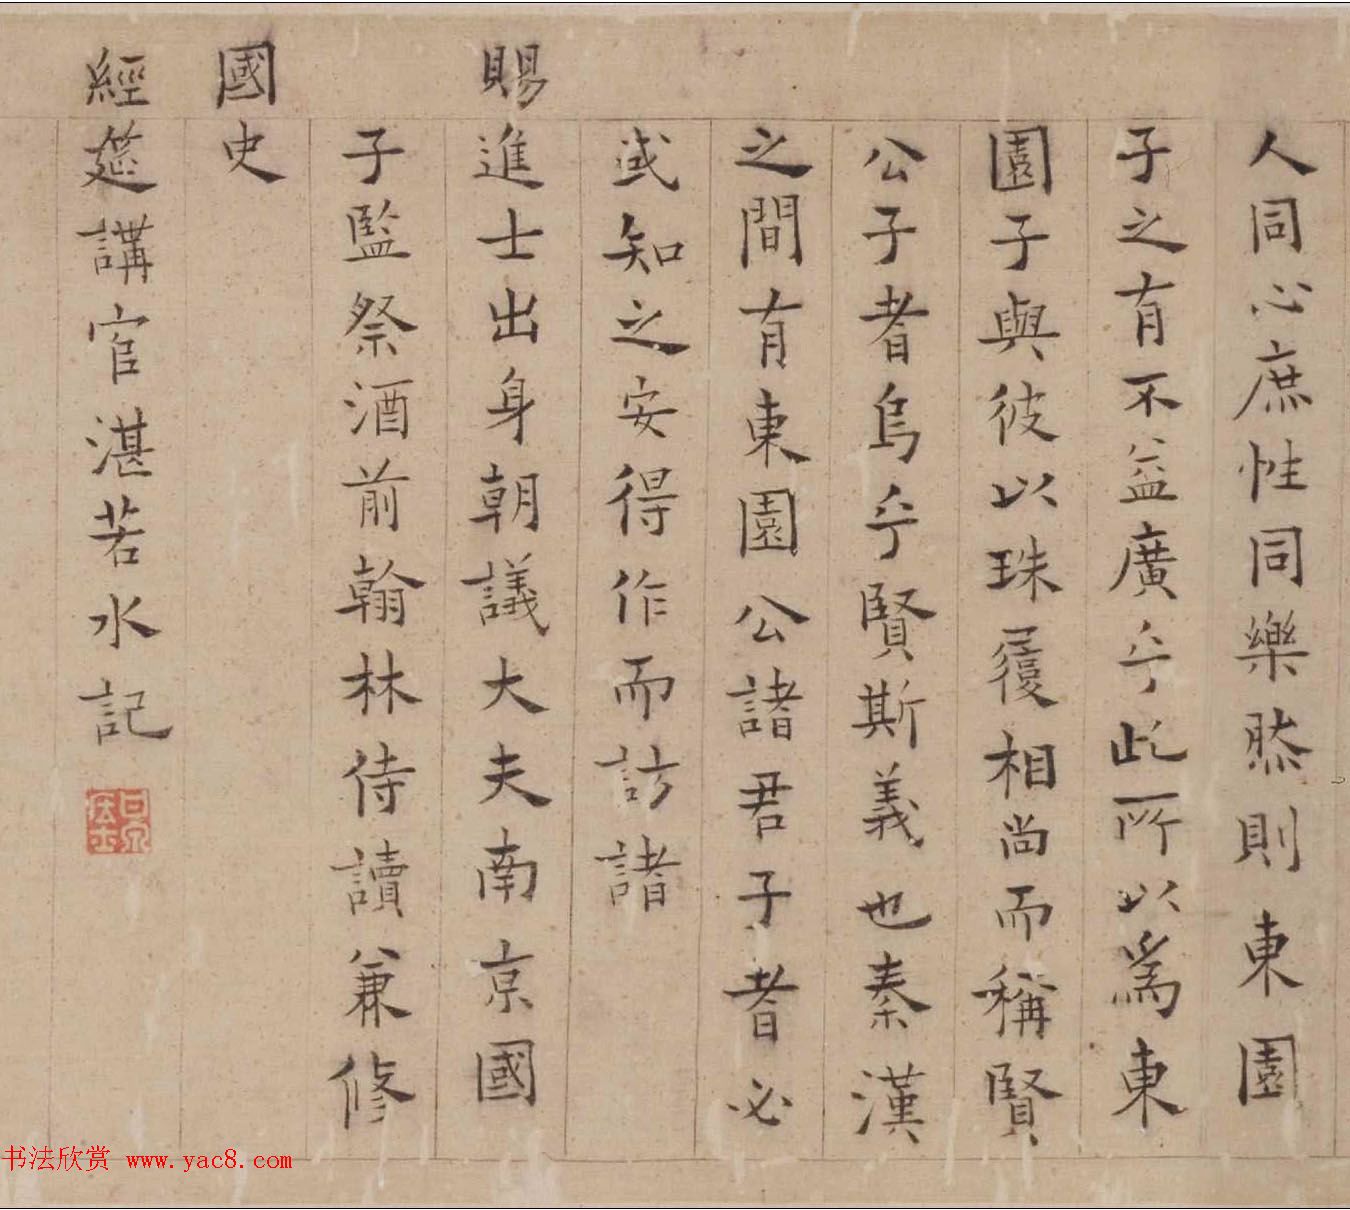 人同心庶性同樂然則東園
子之有不益廣乎此所以為東
園子與彼以珠履相尚而稱賢
公子者烏乎賢斯義也秦漢
之間有東園公諸君子者必
或知之安得作而訪諸
賜進士出身朝議大夫南京國
子監祭酒前翰林侍讀兼修
國史
經筵講官湛若水記
书法欣赏 www.yac8.com